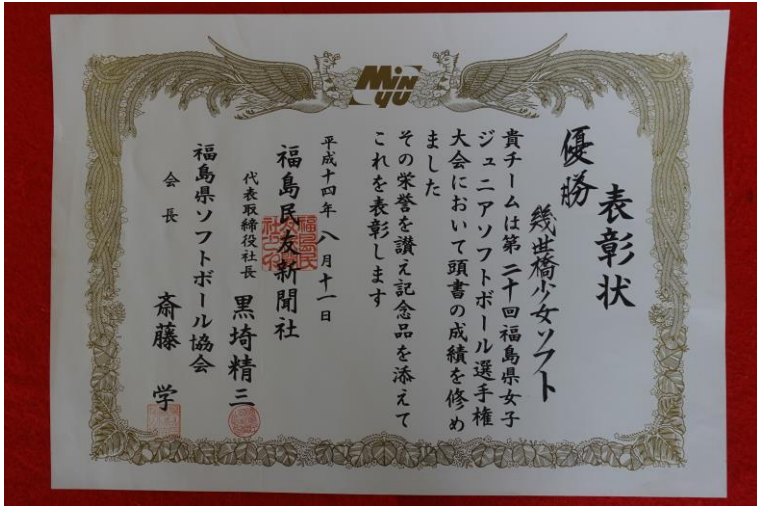 MINYU
表彰状
優勝
幾世橋少女ソフト
貴チームは第二十回福島県女子
ジュニアソフトボール選手権
大会において頭書の成績を修め
ました
その栄誉を讃え記念品を添えて
これを表彰します
平成十四年八月十一日
福島民友新聞社
代表取締役社長 黒埼精三
福島県ソフトボール協会
会長 斎藤学